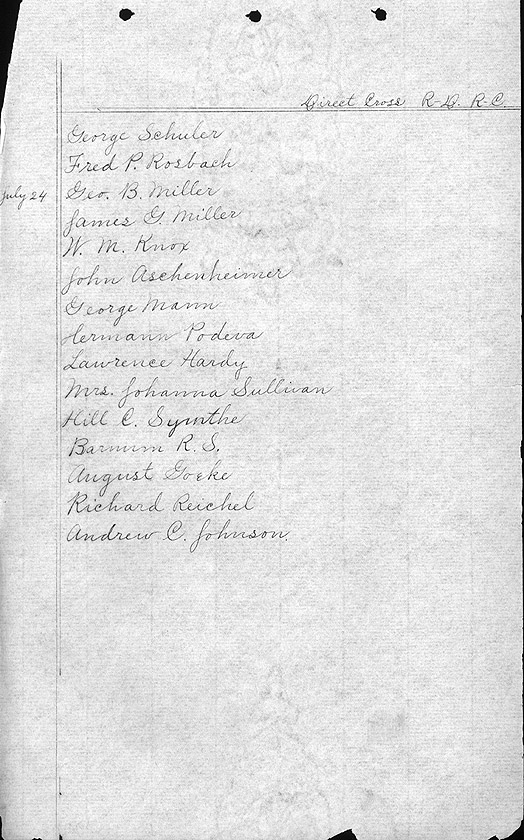 Direct Cross R-D. R-C.
George Schuler
Fred P. Rosbach
July 24 Geo. B. Miller
James G. Miller
W. M. Knox
John Aschenheimer
George Mann
Hermann Podeva
Lawrence Hardy
Mrs. Johanna Sullivan
Hill C. Symthe
Barnum R. S.
August Goeke
Richard Reichel
Andrew C. Johnson.